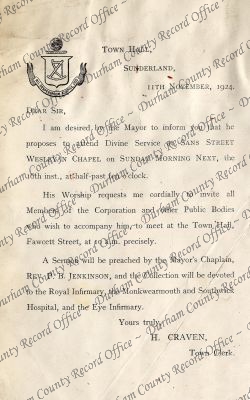 Town Hall,
Sunderland,
11th November, 1924.
Dear Sir,
I am desired by the Mayor to inform you that he
proposes to attend Divine Service at Sans Street
Wesleyan Chapel on Sunday Morning Next, the
16th inst., at half-past ten o'clock.
His Worship requests me cordially to invite all
Members of the Corporation and other Public Bodies
who wish to accompany him, to meet at the Town Hall,
Fawcett Street, at 10 a.m. precisely.
A Sermon will be preached by the Mayor's Chaplain,
Rev. P. B. Jenkinson, and the Collection will be devoted
to the Royal Infirmary, the Monkwearmouth and Southwick
Hospital, and the Eye Infirmary.
Yours truly,
H. Craven,
Town Clerk.
Durham County Record Office - Durham County Record Office